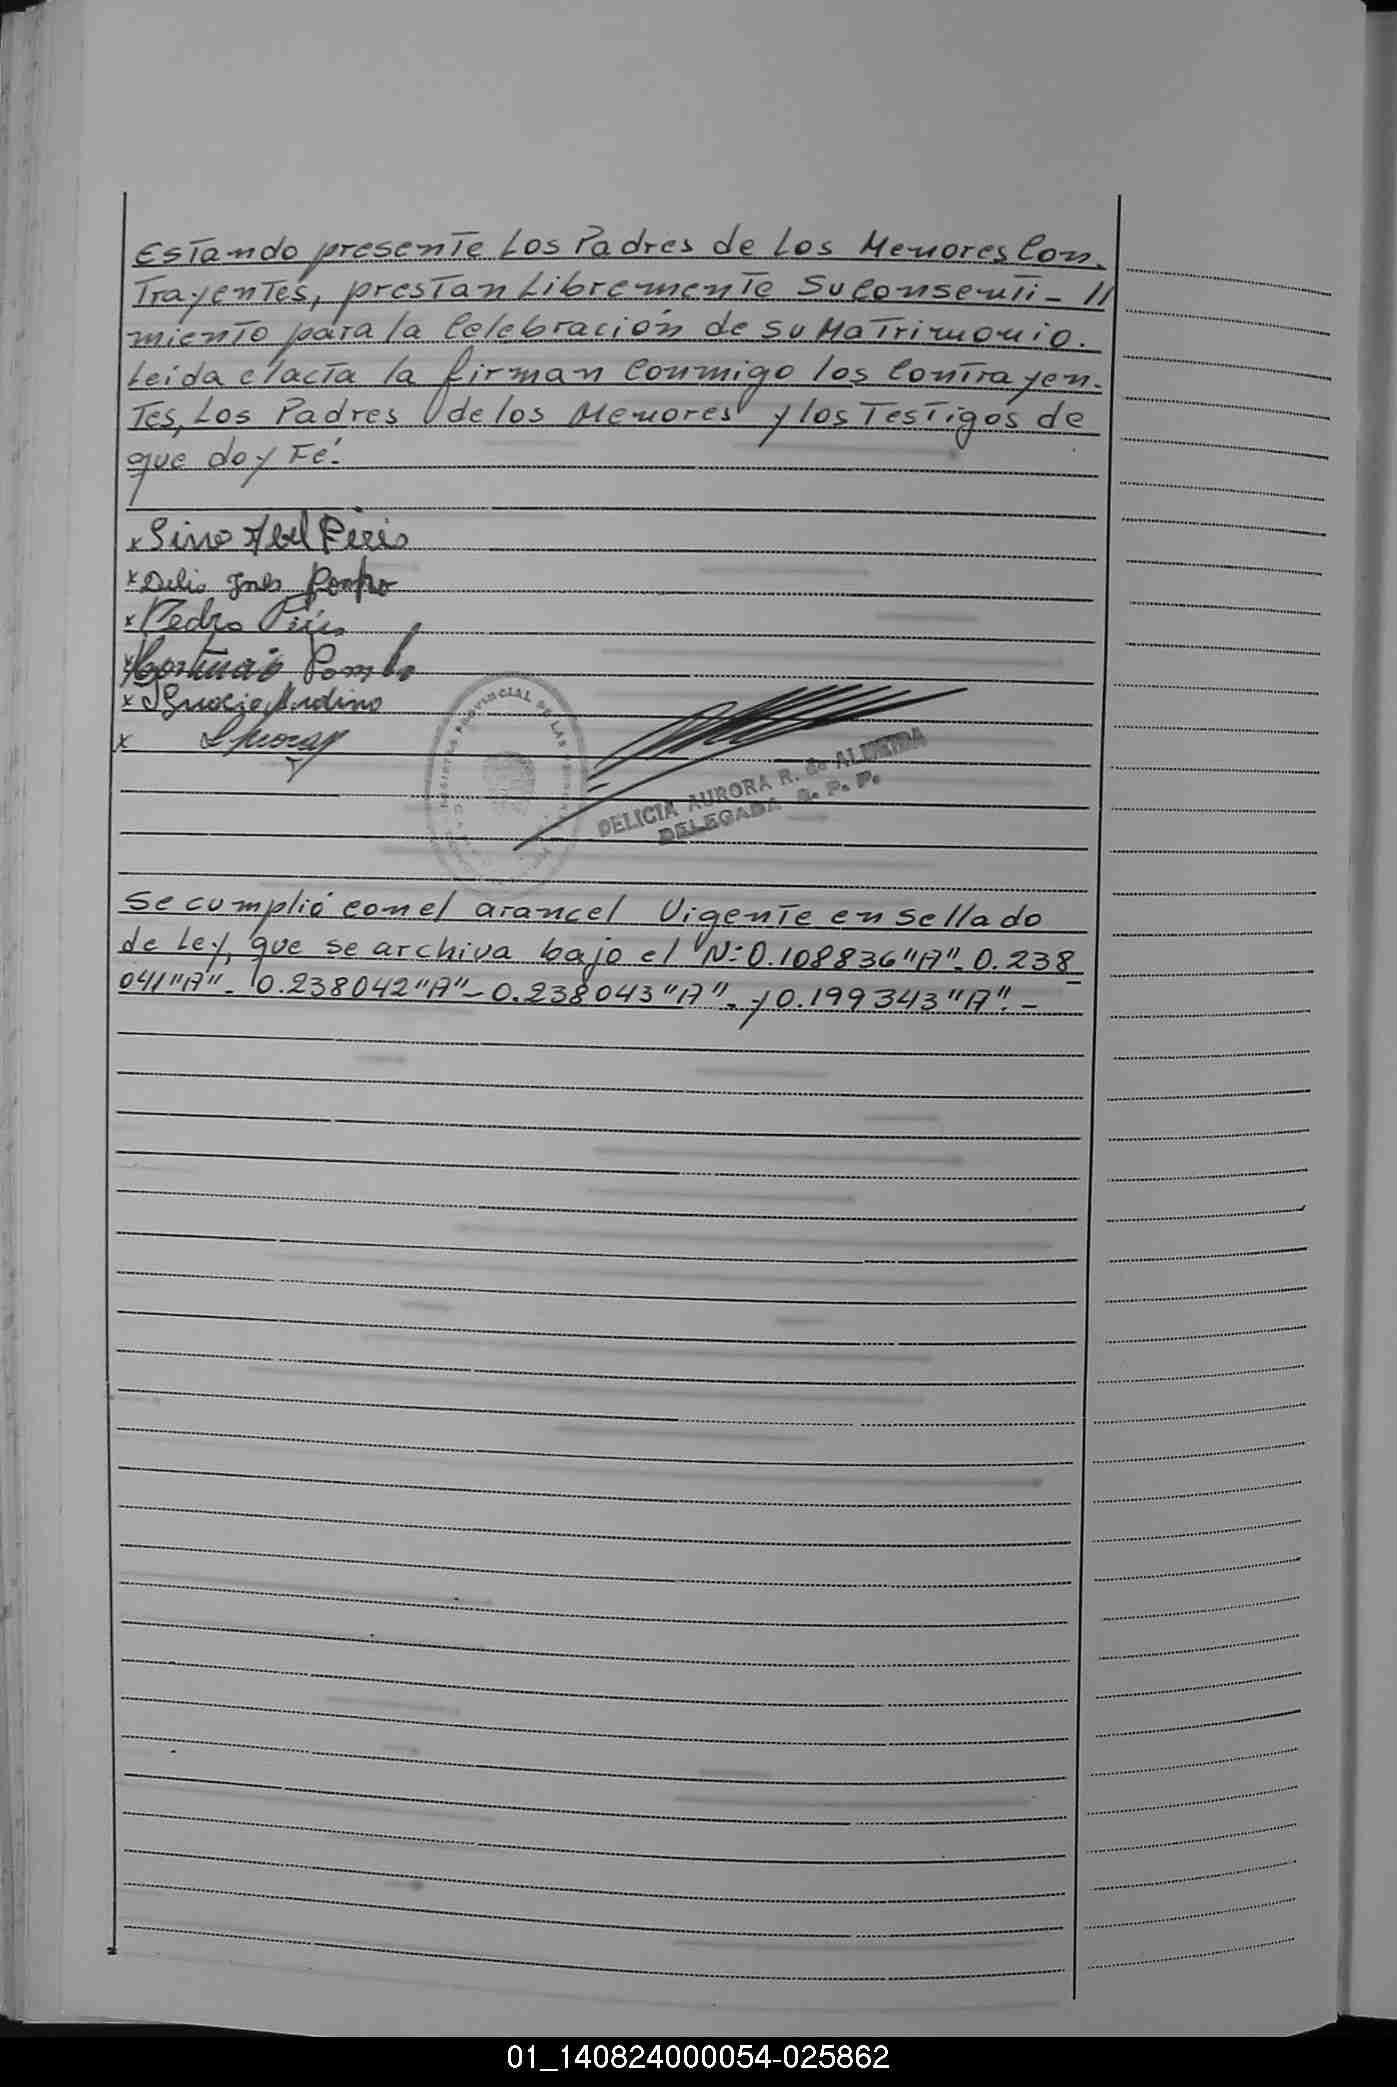 Estando presente Los Padres de Los Menores Con-
Trayentes, prestan Libremente Su Consenti- //
miento para la Celebración de su Matrimonio.
Leida el acta la firman Conmigo los Contrayen-
Tes, Los Padres de los Menores y los Testigos de
que doy Fé.
x Sino Abel Piris
x Delia Ynes Pombo
x Pedro Piris
x Pombo
x Ignacio Andino
x
REGISTRO PROVINCIAL DE LAS
DELICIA AURORA R. de ALMEIDA
DELEGADA R. P. P.
Se cumplió con el arancel Vigente en sellado
de Ley, que se archiva bajo el N: 0.108836 "A". 0.238
041 "A" - 0.238042 "A" - 0.238043 "A" - y 0.199343 "A". -
01_140824000054-025862